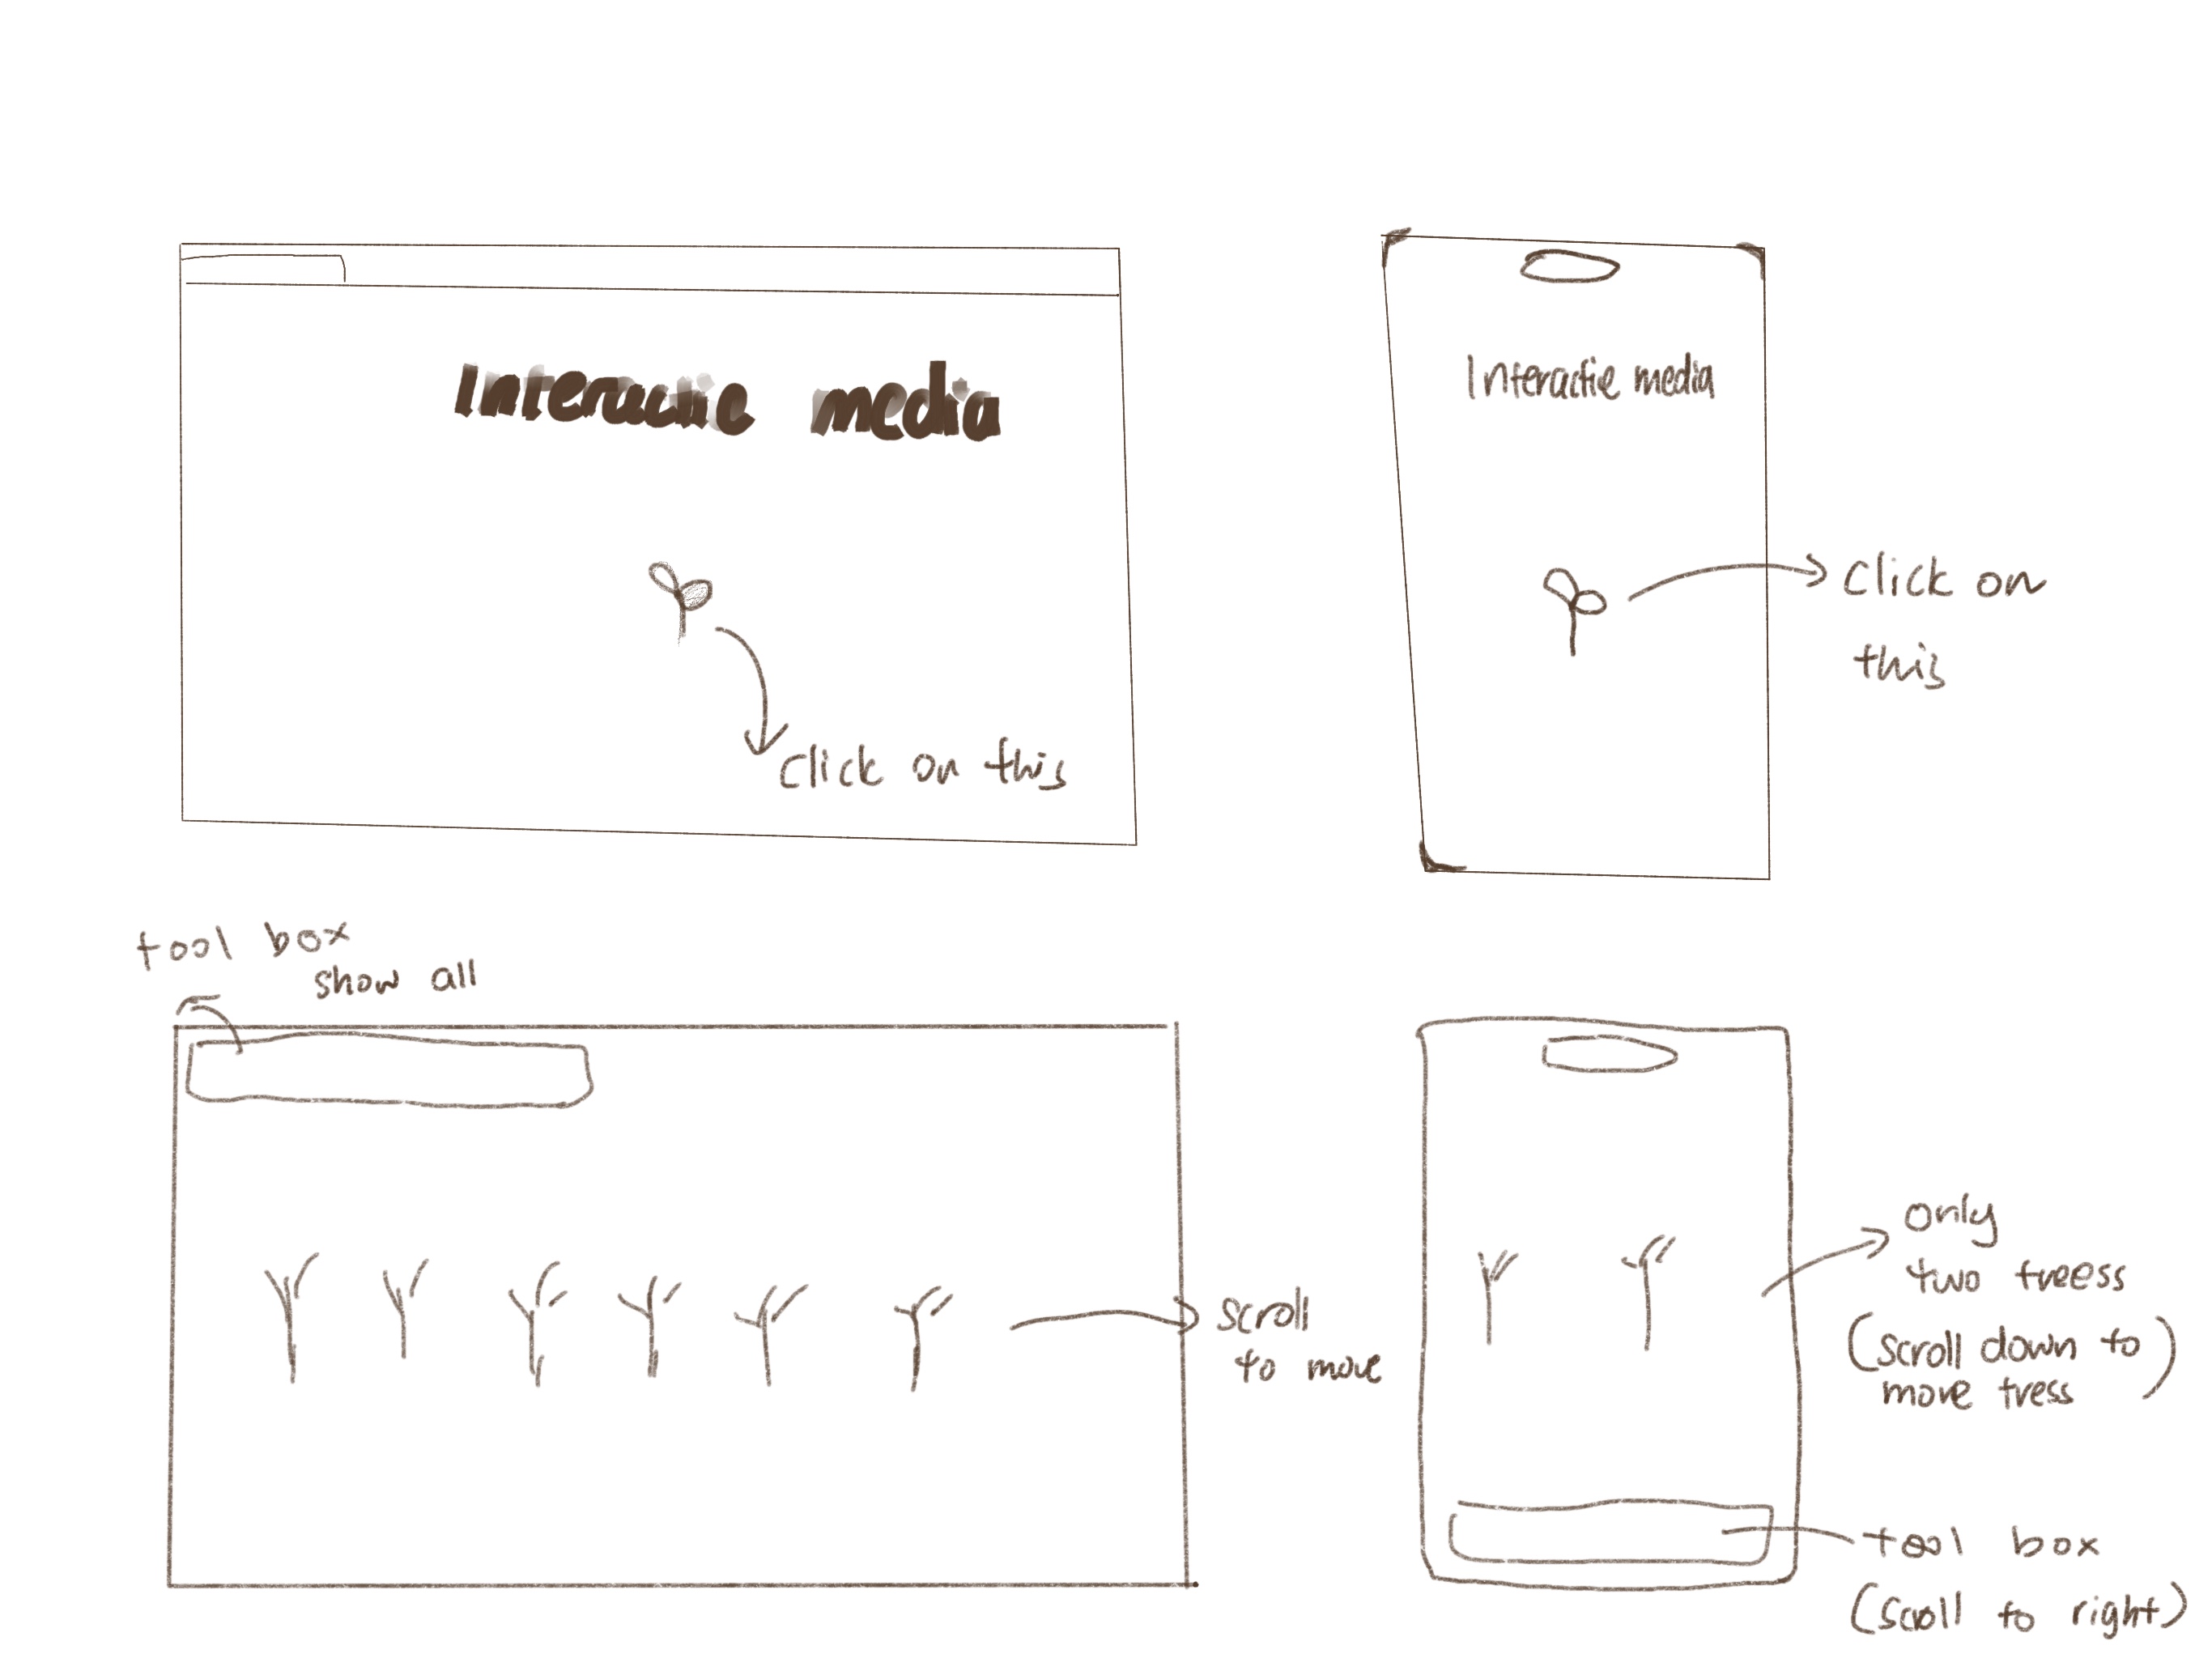 Interactie media
click on this
Interactie media
click on
this
tool box
show all
scroll
to move
only
two treess
(scroll down to)
move tress
tool box
(scroll to right)